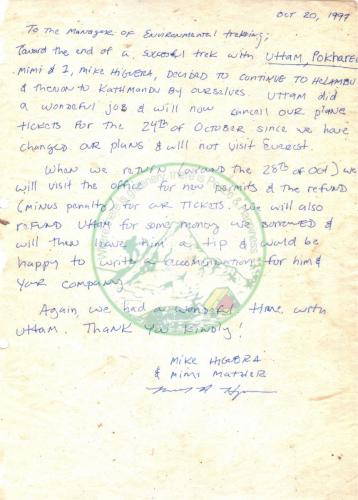 Oct 20, 1997
To the Manager of Environmental trekking;
Toward the end of a successful trek with Uttam, Pokharel
Mimi & I, Mike Higuera, decided to continue to Helambu
& then on to Kathmandu by ourselves. Uttam did
a wonderful job & will now cancel our plane
tickets for the 24th of October since we have
changed our plans & will not visit Everest.
When we return (around the 28th of Oct) we
will visit the office for new permits & the refund
(minus penalty) for our tickets. We will also
refund Uttam for some money we borrowed &
will then leave him a tip & would be
happy to write a recommendation for him &
your company.
Again we had a wonderful time with
Uttam. Thank you kindly!
Mike Higuera
& Mimi